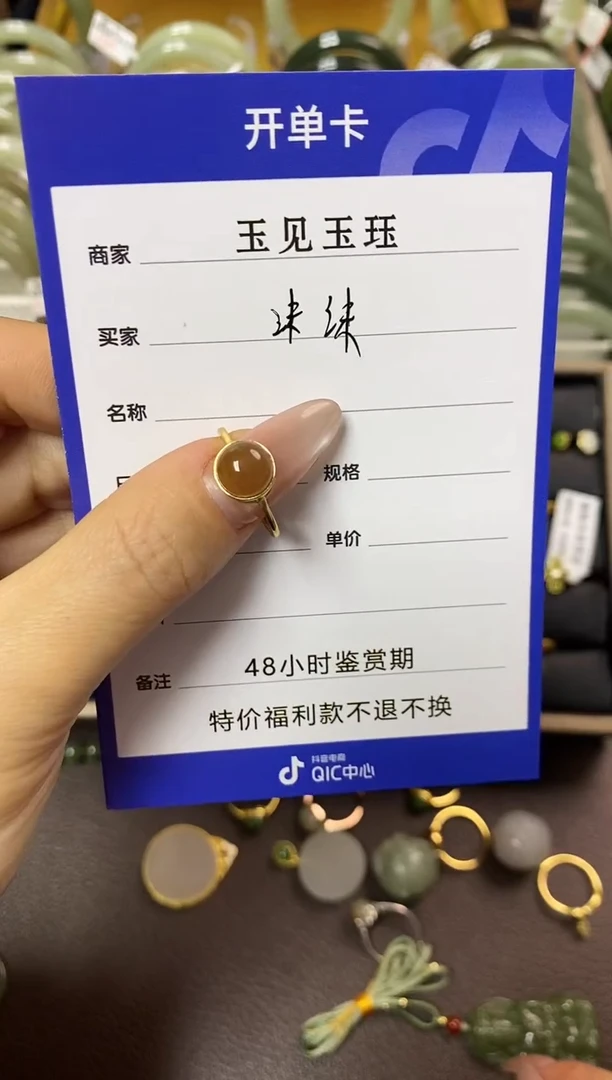 开单卡
商家 玉见玉珏
买家
名称
规格
单价
备注 48小时鉴赏期
特价福利款不退不换
抖音电商
QIC中心